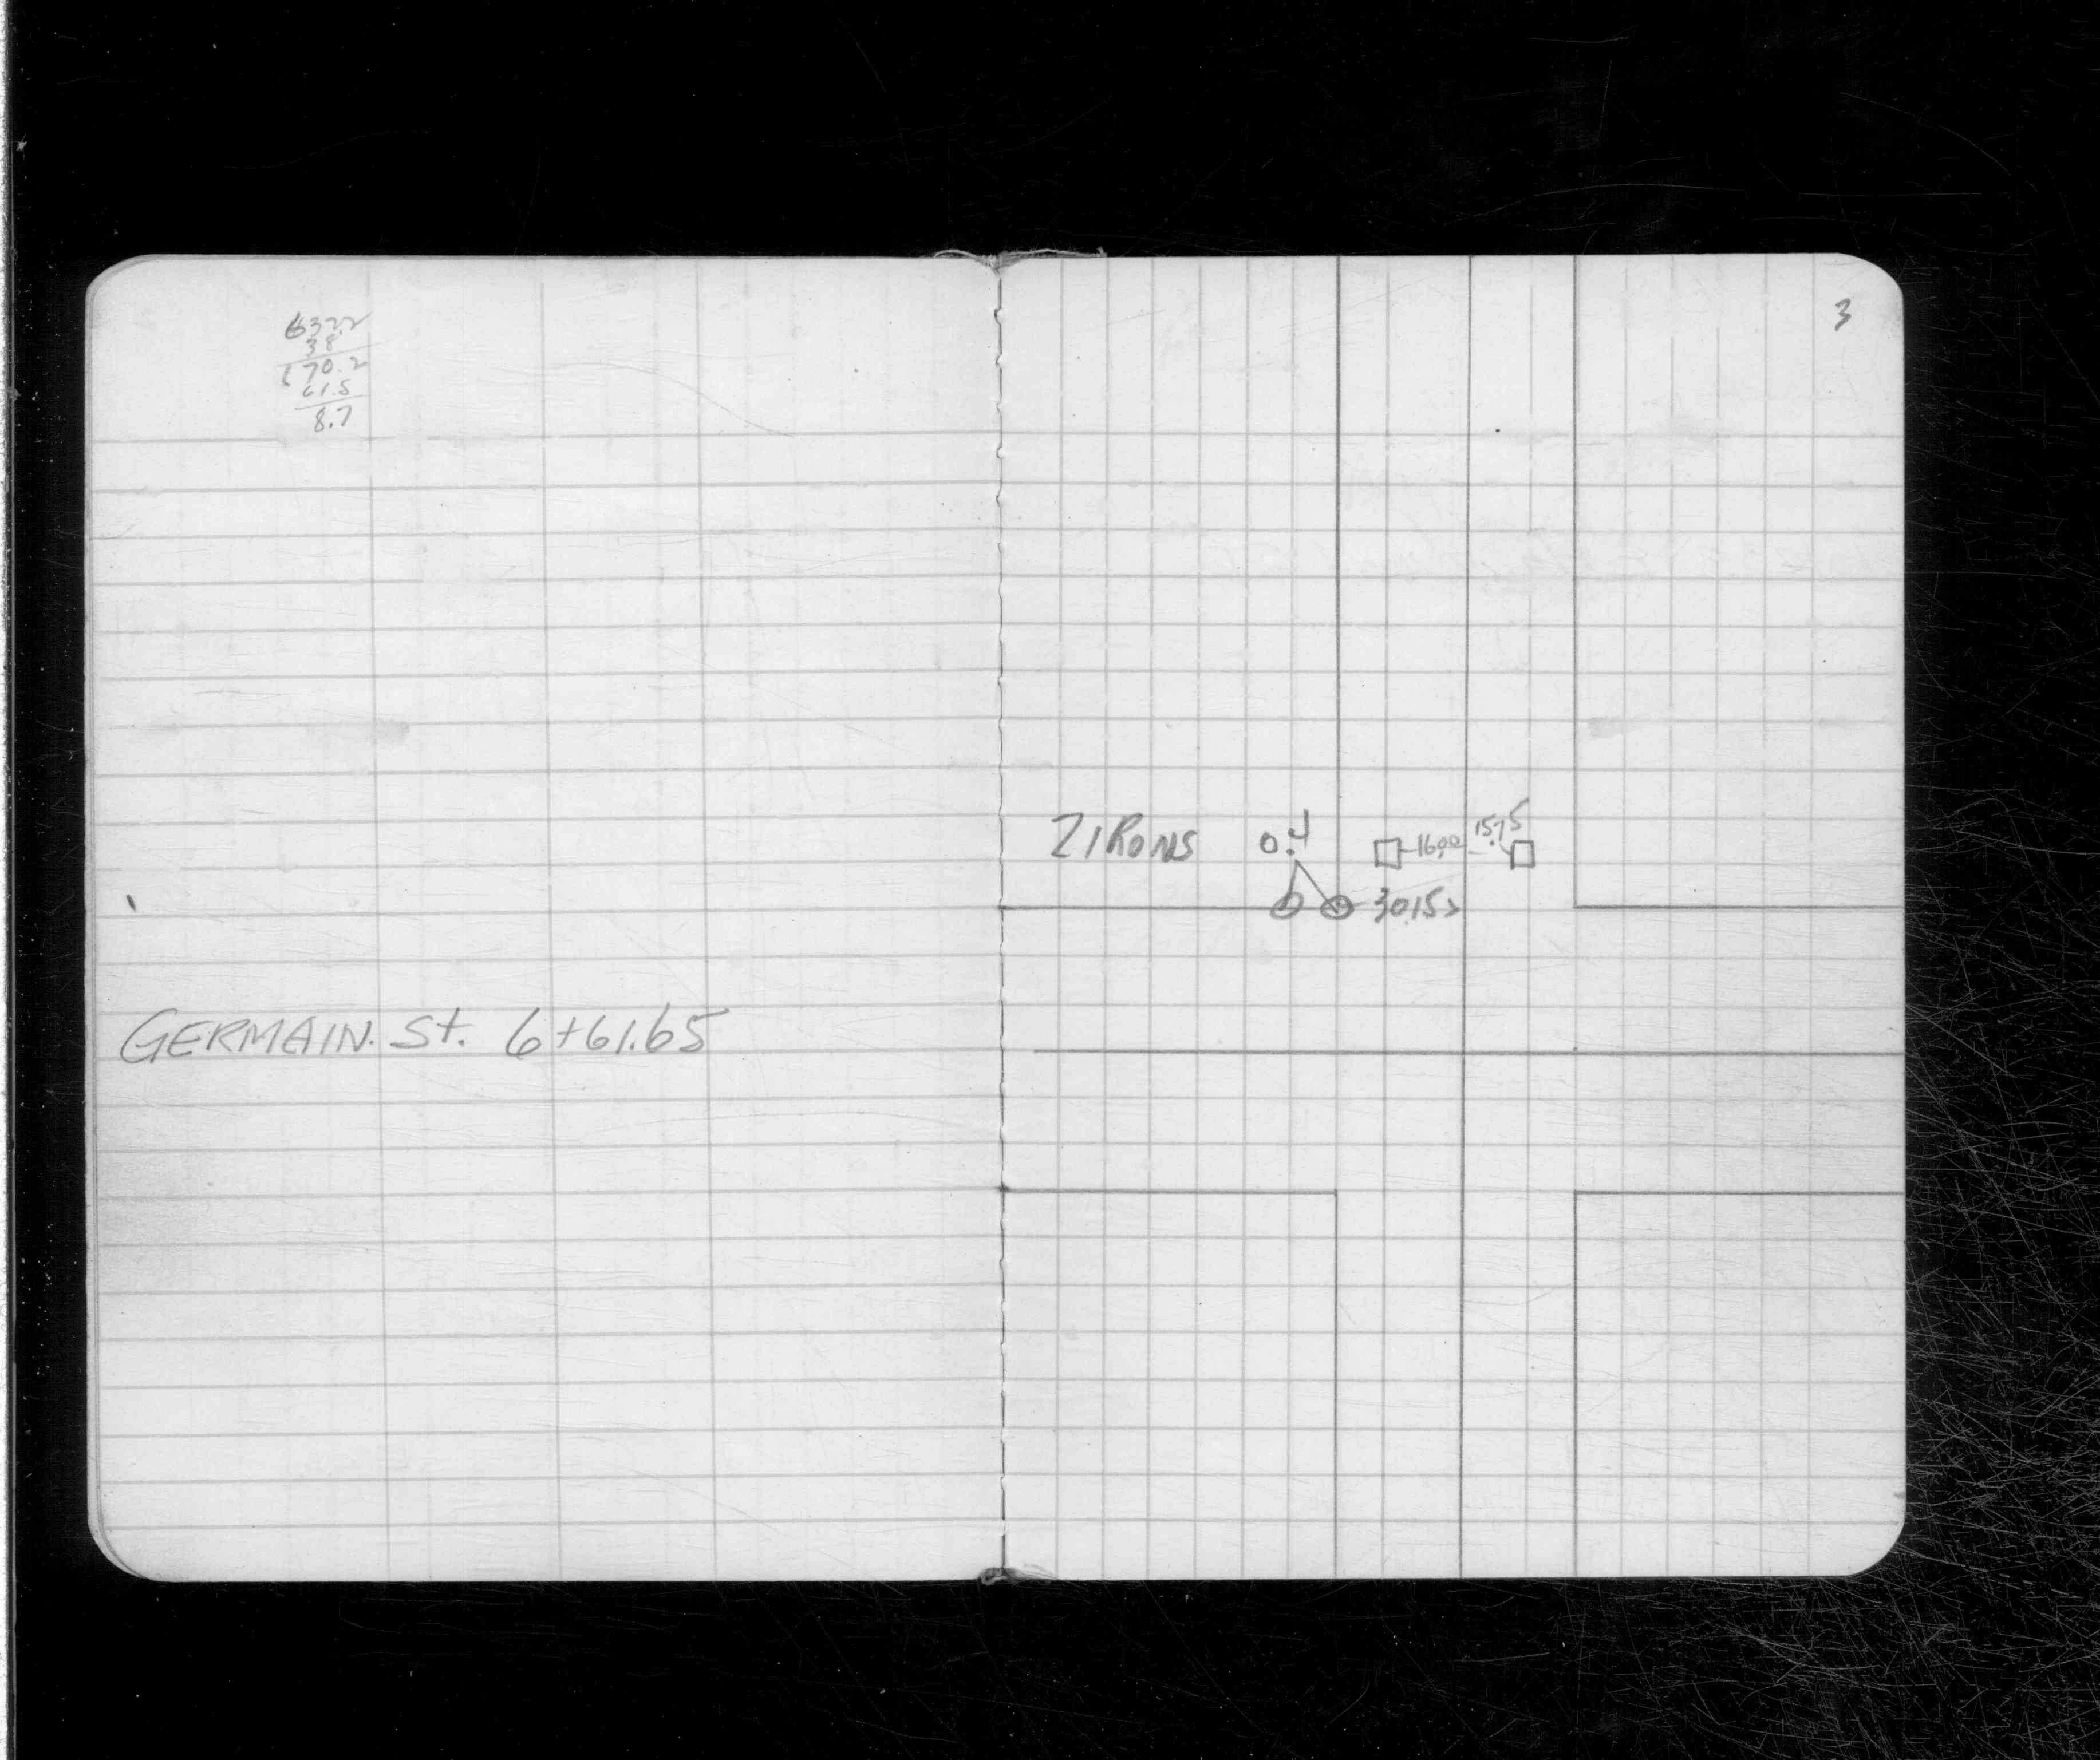 632.2
38
670.2
61.5
8.7
GERMAIN. St. 6+61.65
3
2 IRONS 0.4 16.00 15.75
30.15